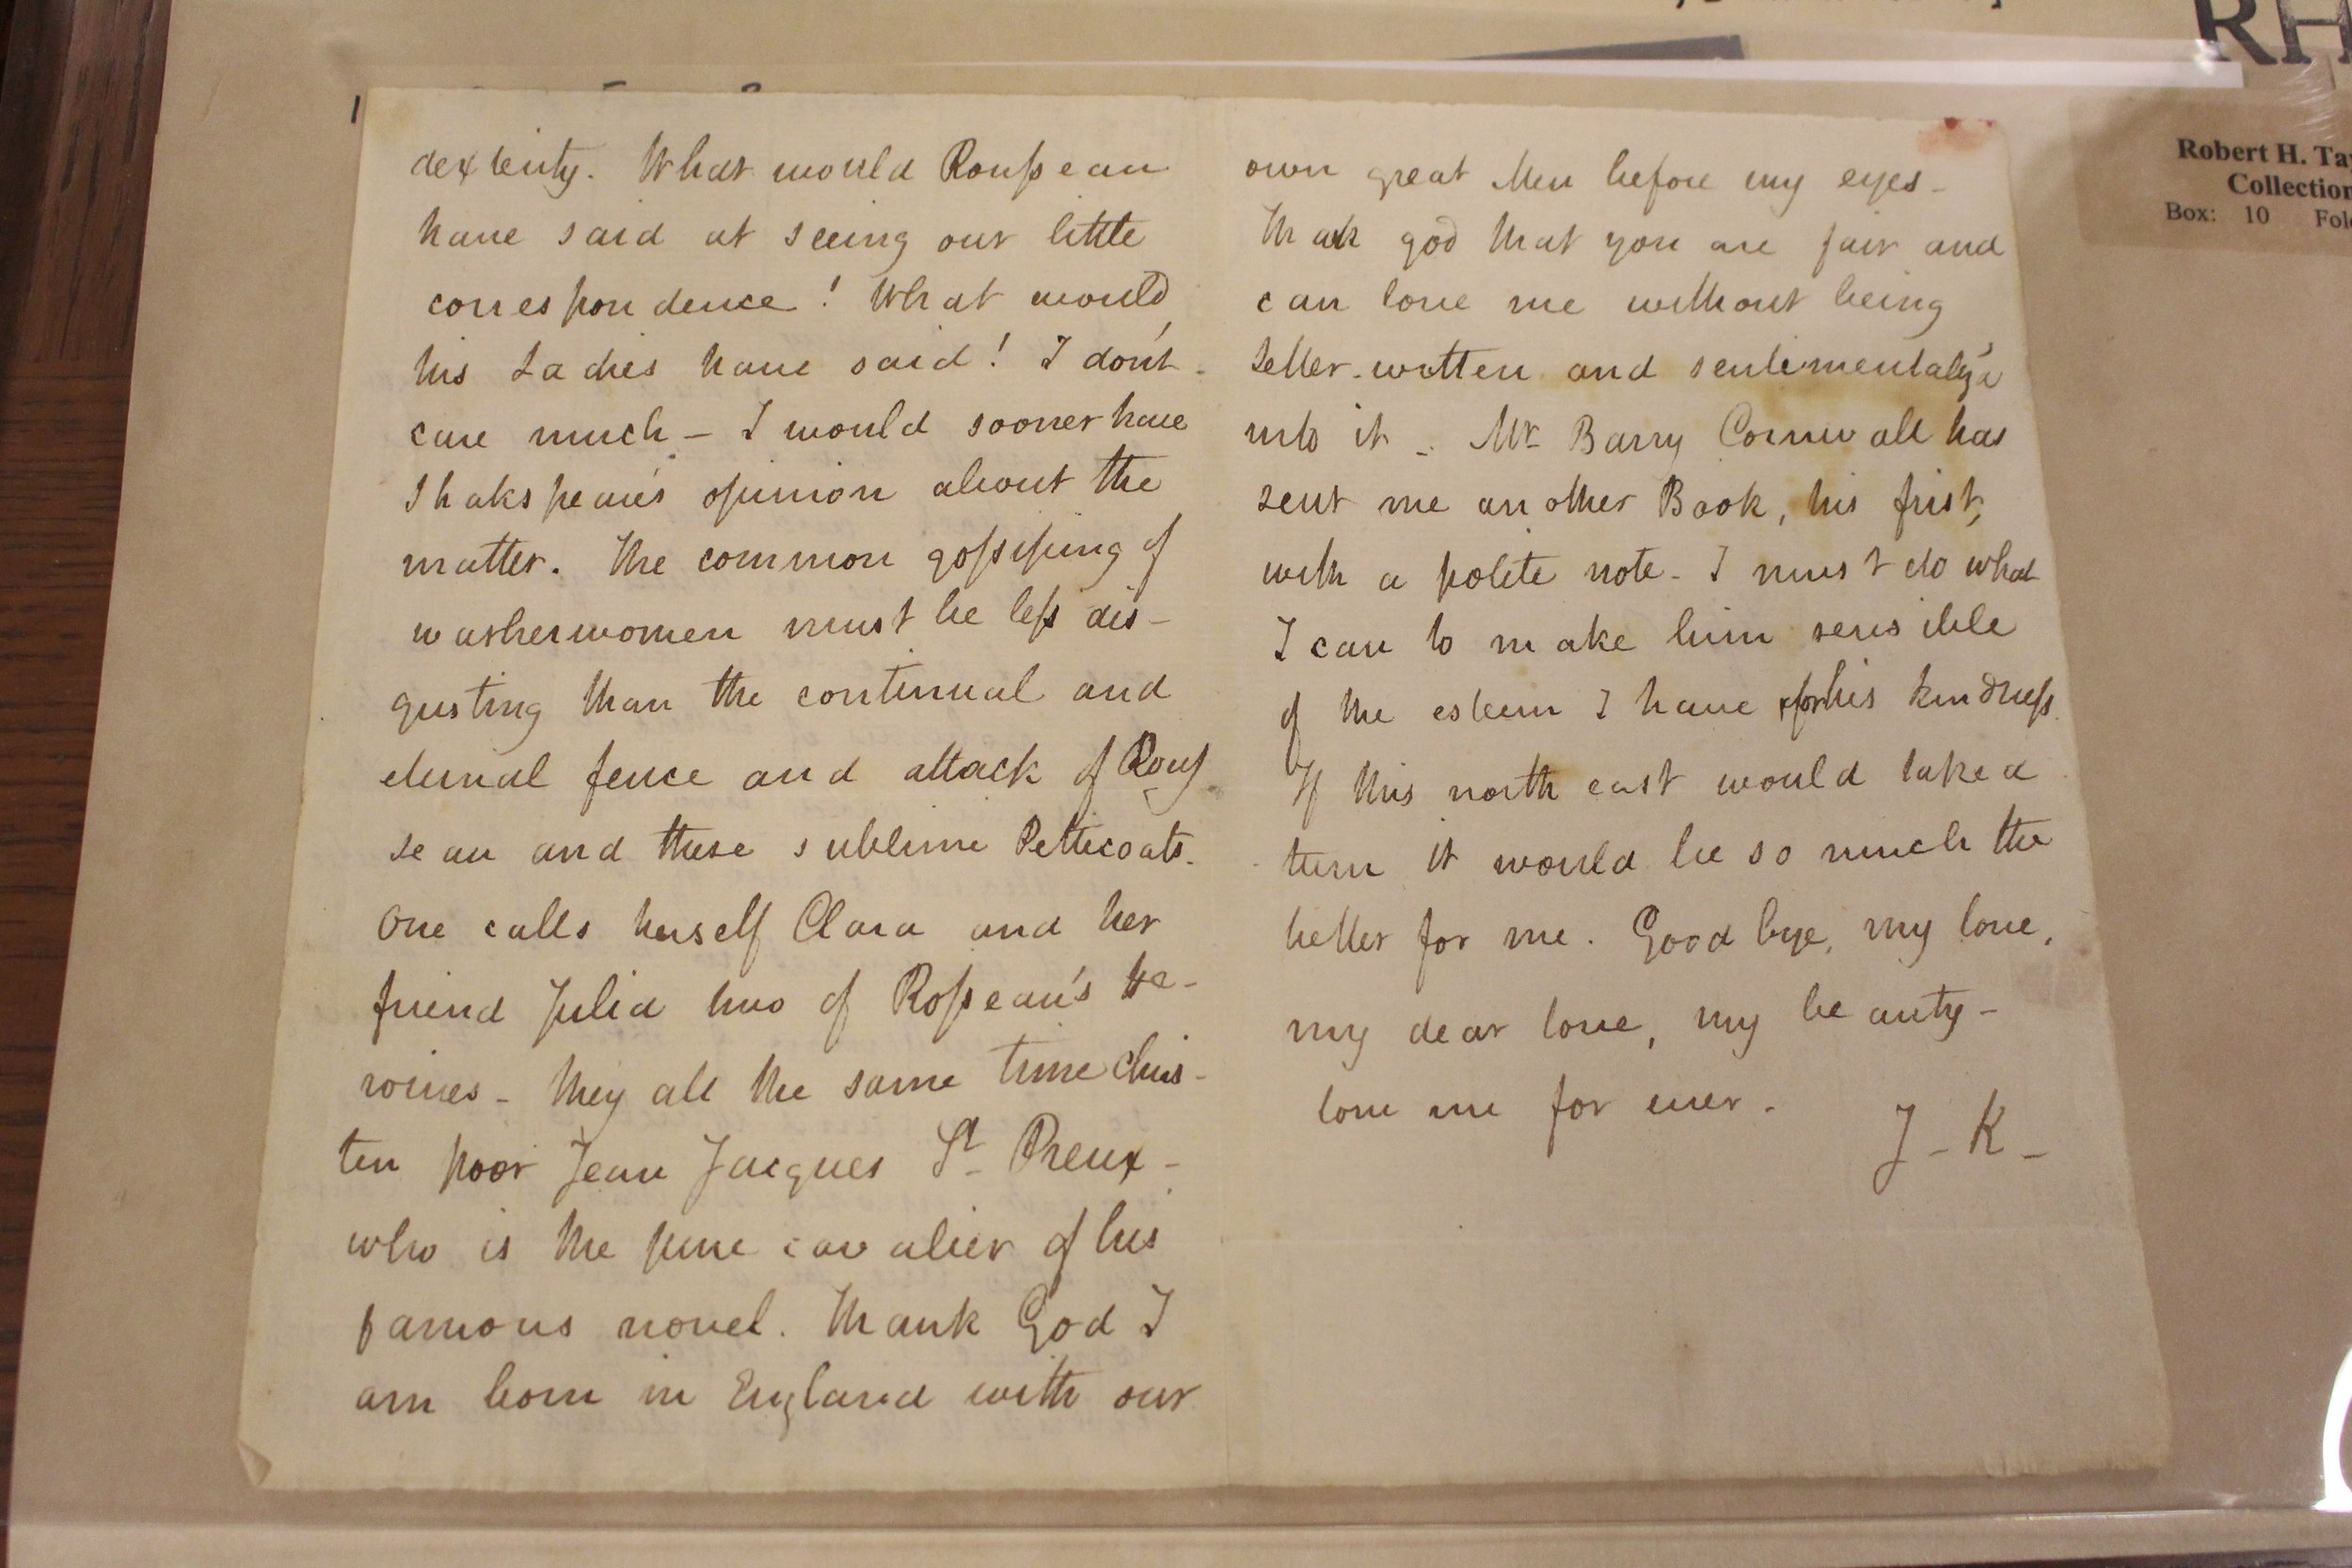 dexterity. What would Rousseau
have said at seeing our little
correspondence! What would
his Ladies have said! I don't
care much — I would sooner have
Shakspeare's opinion about the
matter. The common gossiping of
washerwomen must be less dis-
gusting than the continual and
eternal fence and attack of Rous
seau and these sublime Petticoats.
One calls herself Clara and her
friend Julia two of Rosseau's He-
roines - they all the same time chris-
ten poor Jean Jacques St Preux -
who is the pure cavalier of his
famous novel. Thank God I
am born in England with our
own great Men before my eyes -
Thank god that you are fair and
can love me without being
Letter-written and sentimentaliz'd
into it - Mr Barry Cornwall has
sent me another Book, his first,
with a polite note - I must do what
I can to make him sensible
of the esteem I have for his kindness.
If this north east would take a
turn it would be so much the
better for me. Good bye, my love,
my dear love, my beauty -
love me for ever -
J - K -
RH
Robert H. Tay
Collection
Box: 10 Fol